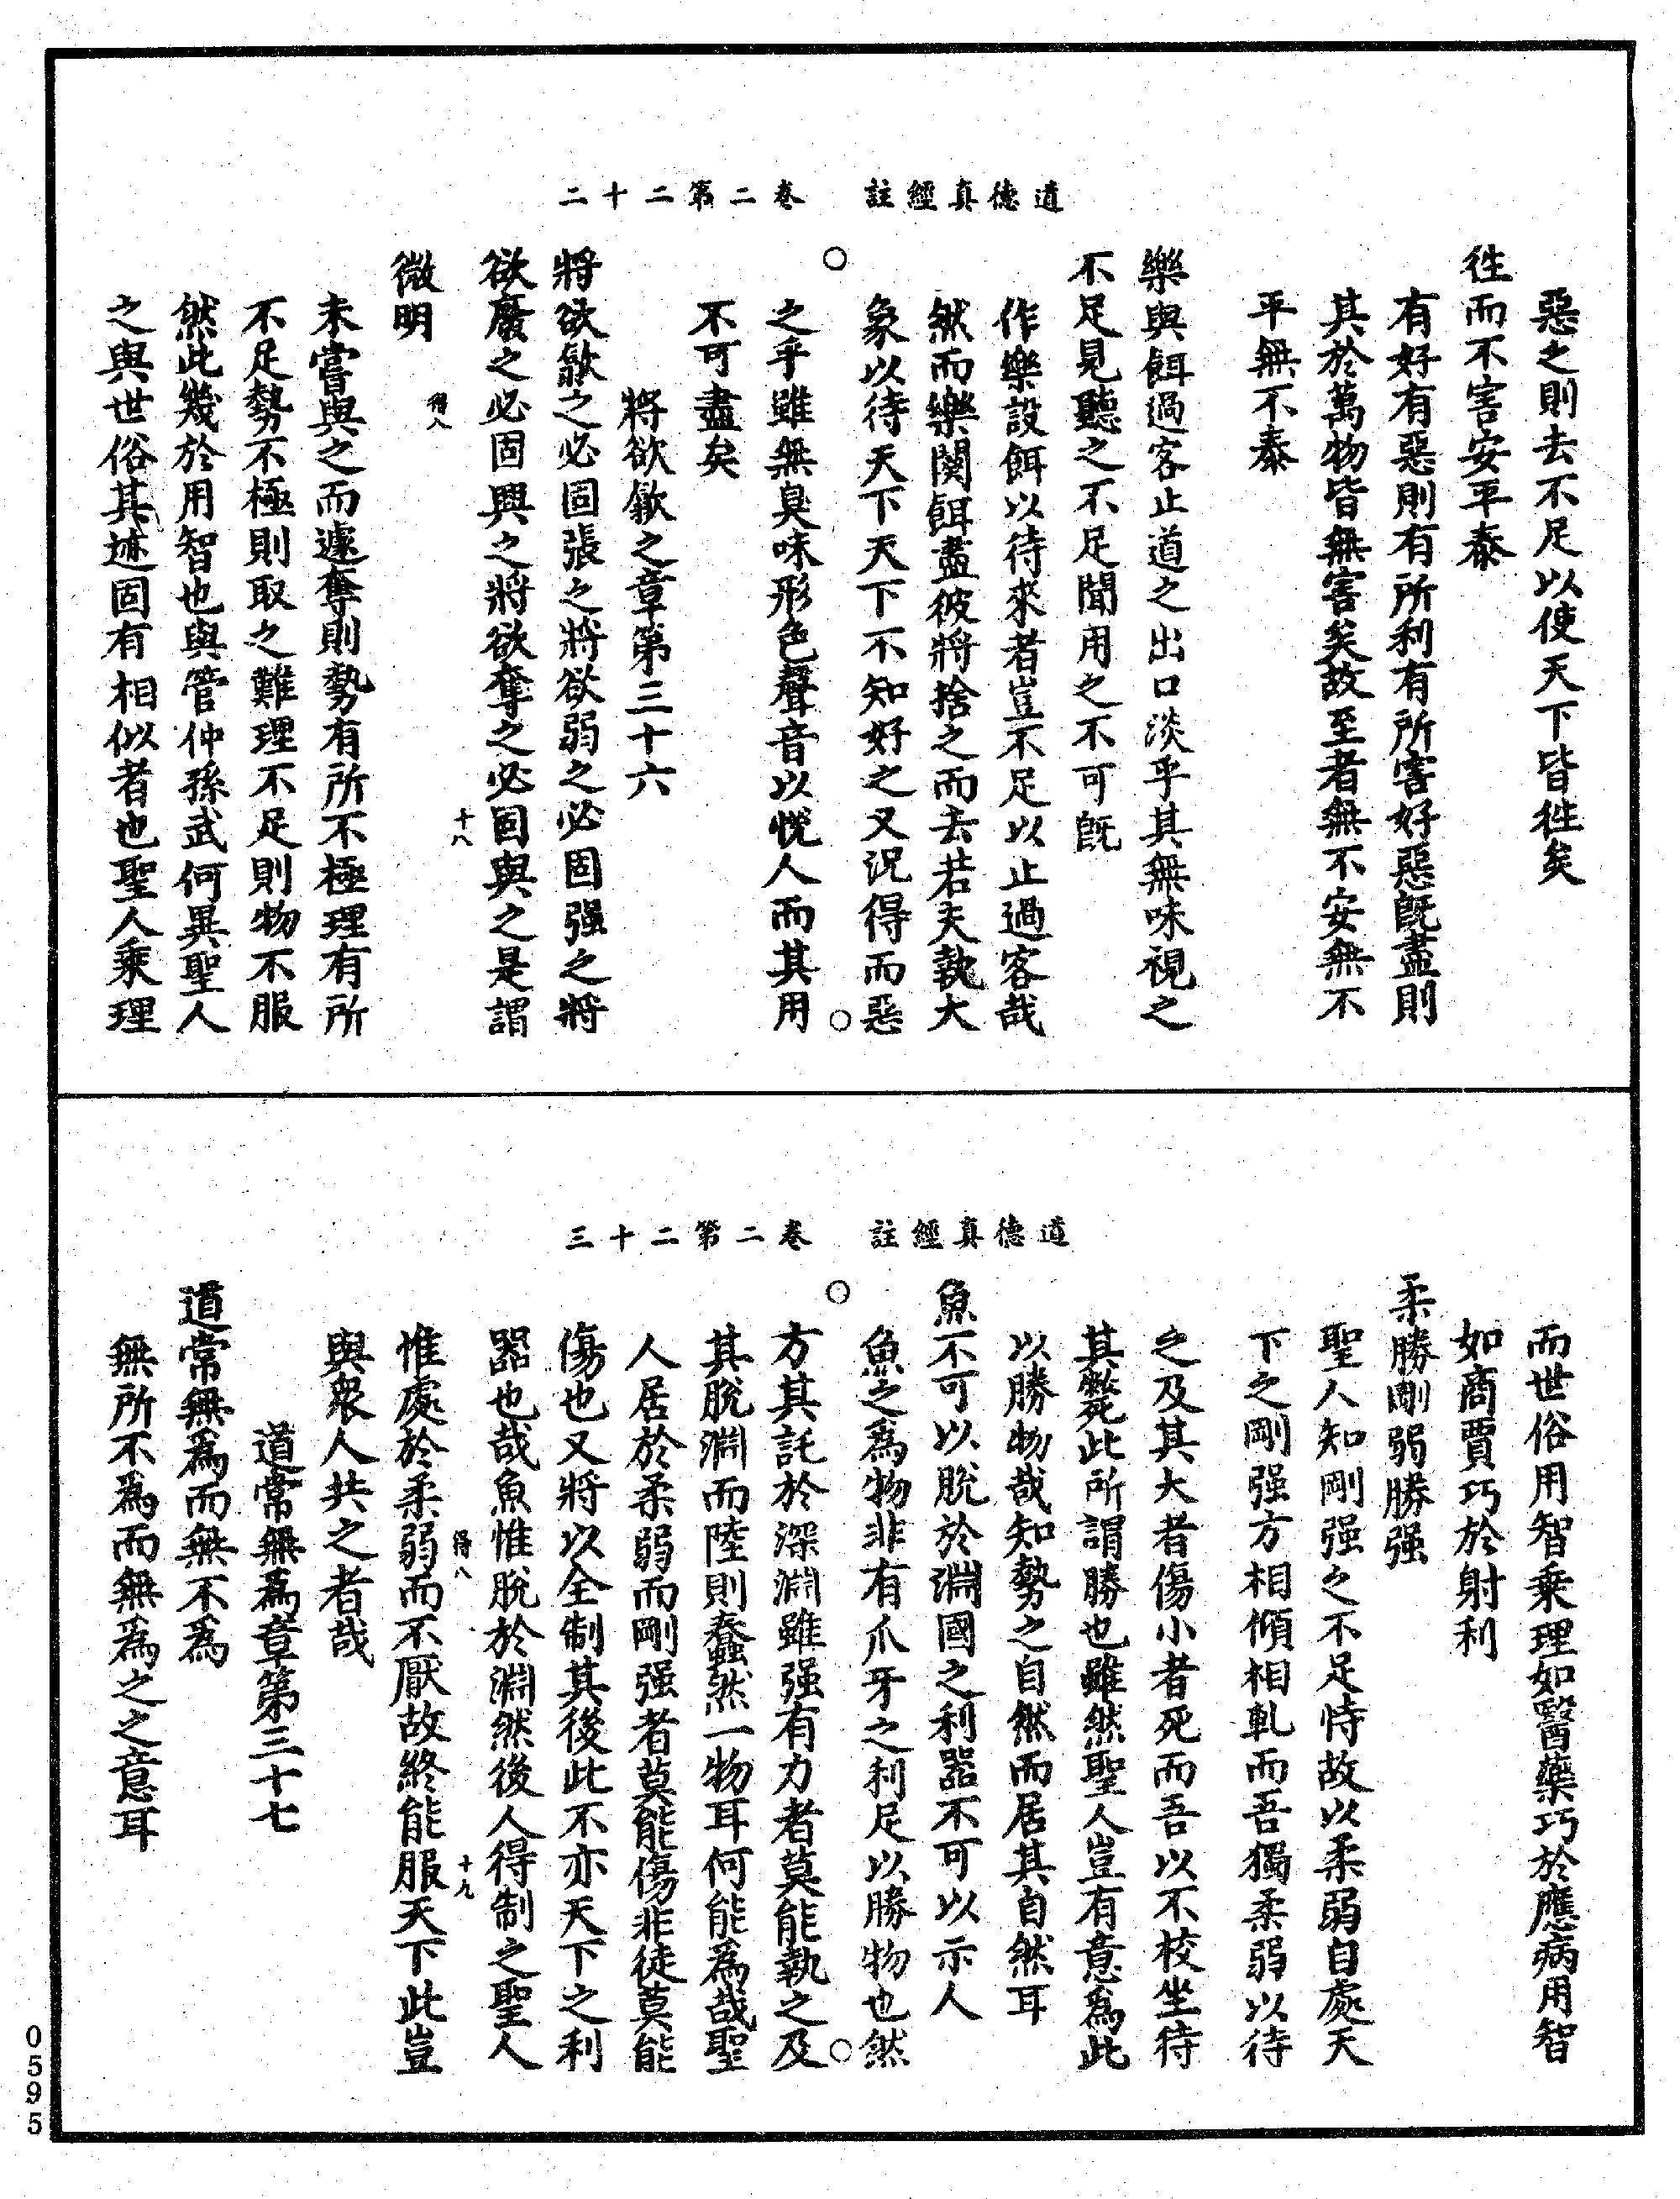 道德真經註　卷二第二十二
惡之則去不足以使天下皆徃矣
徃而不害安平泰
有好有惡則有所利有所害好惡旣盡則
其於萬物皆無害矣故至者無不安無不
平無不泰
樂與餌過客止道之出口淡乎其無味視之
不足見聽之不足聞用之不可旣
作樂設餌以待來者豈不足以止過客哉
然而樂闋餌盡彼將捨之而去若夫執大
象以待天下天下不知好之又況得而惡
之乎雖無臭味形色聲音以悅人而其用
不可盡矣
將欲歙之章第三十六
將欲歙之必固張之將欲弱之必固强之將
欲廢之必固興之將欲奪之必固與之是謂
微明
得八
十八
未嘗與之而遽奪則勢有所不極理有所
不足勢不極則取之難理不足則物不服
然此幾於用智也與管仲孫武何異聖人
之與世俗其迹固有相似者也聖人乘理
道德真經註　卷二第二十三
而世俗用智乘理如醫藥巧於應病用智
如商賈巧於射利
柔勝剛弱勝强
聖人知剛强之不足恃故以柔弱自處天
下之剛强方相傾相軋而吾獨柔弱以待
之及其大者傷小者死而吾以不校坐待
其斃此所謂勝也雖然聖人豈有意爲此
以勝物哉知勢之自然而居其自然耳
魚不可以脫於淵國之利器不可以示人
魚之爲物非有爪牙之利足以勝物也然
方其託於深淵雖强有力者莫能執之及
其脫淵而陸則蠢然一物耳何能爲哉聖
人居於柔弱而剛强者莫能傷非徒莫能
傷也又將以全制其後此不亦天下之利
器也哉魚惟脫於淵然後人得制之聖人
惟處於柔弱而不厭故終能服天下此豈
得八
十九
與衆人共之者哉
道常無爲章第三十七
道常無爲而無不爲
無所不爲而無爲之之意耳
0595